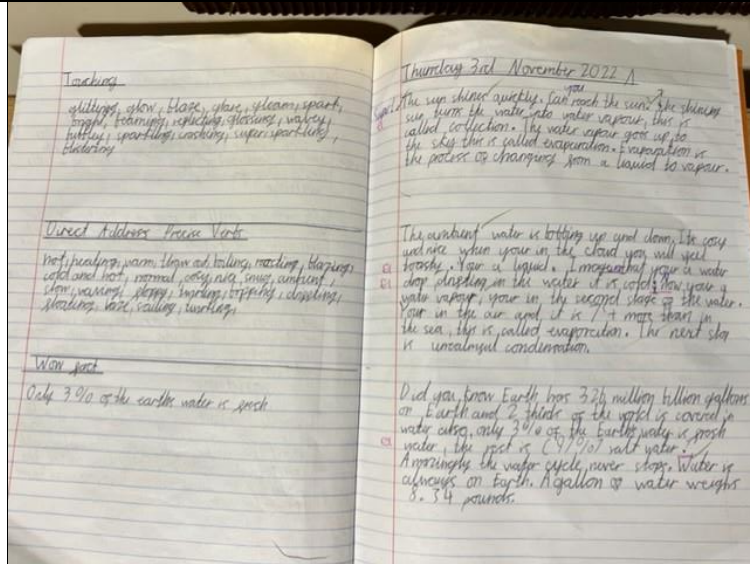 Touching
glittering, glow, blaze, glare, gleam, spark,
bright, beaming, reflecting, glossing, wavey
turtley, sparkling, crashing, super sparkling,
blistering
Direct Address Precise Verbs
hot, heating, warm, thaw out, boiling, roasting, blazing,
cold and hot, normal, cosy, nice, snug, ambient,
slow, waving, sloppy, swirling, bopping, dazzling,
floating, sailing,
Wow fact
Only 3% of the earths water is fresh
Thursday 3rd November 2022
The sun shines quickly. Can you reach the sun? The shining
sun, turns the water into water vapour, this is
called collection. The water vapour goes up to
the sky this is called evaporation. Evaporation is
the process of changing from a liquid to vapour.
The ambient water is bobbing up and down. Its cosy
and nice when your in the cloud you will feel
toasty. Your a liquid. Imagine your a water
drop drifting in the water it is cold, now your a
water vapour, your in the second stage of the water.
Your in the air and it is more than in
the sea, this is called evaporation. The next step
is condensation.
Did you know Earth has 326 million trillion gallons
on Earth and 2 thirds of the world is covered in
water also, only 3% of the Earths water is fresh
water, the rest is (97%) salt water.
Amazingly the water cycle never stops. Water is
always on Earth. A gallon of water weighs
8.34 pounds.